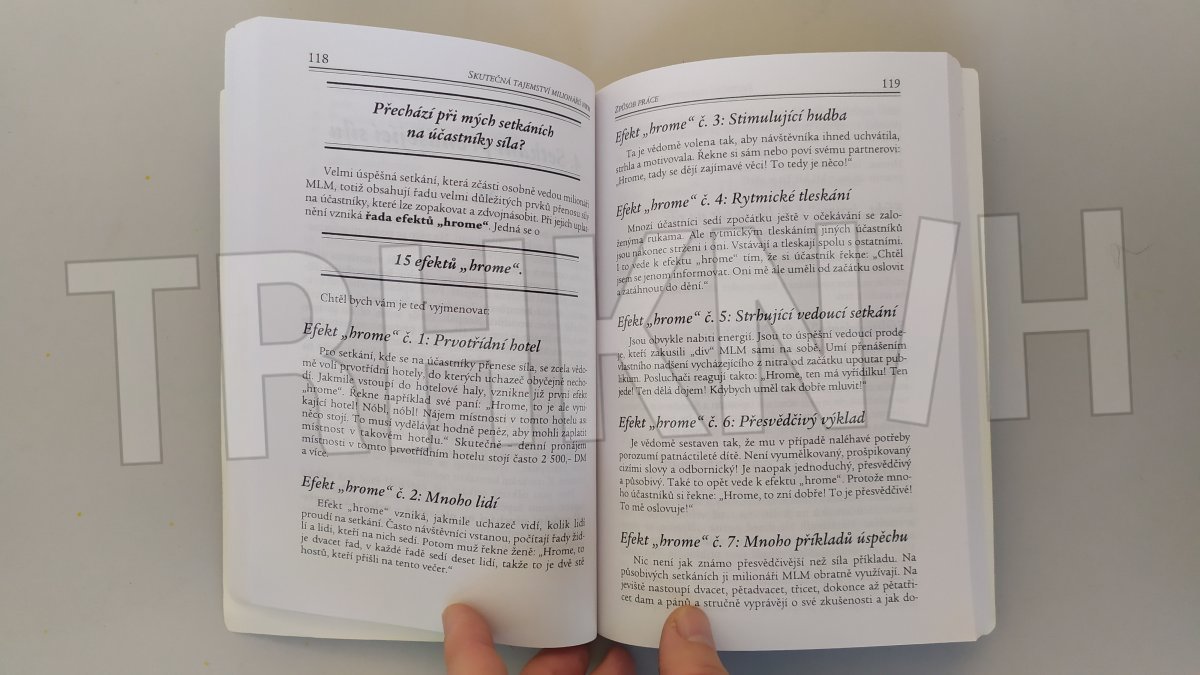 118
SKUTEČNÁ TAJEMSTVÍ MILIONÁŘŮ
Přechází při mých setkáních
na účastníky síla?
Velmi úspěšná setkání, která zčásti osobně vedou milionáři
MLM, totiž obsahují řadu velmi důležitých prvků přenosu síly
na účastníky, které lze zopakovat a zdvojnásobit. Při jejich uplat-
nění vzniká řada efektů „hrome“. Jedná se o
15 efektů „hrome“.
Chtěl bych vám je teď vyjmenovat:
Efekt „hrome“ č. 1: Prvotřídní hotel
Pro setkání, kde se na účastníky přenese síla, se zcela vědo-
mě volí prvotřídní hotely, do kterých uchazeč obyčejně necho-
dí. Jakmile vstoupí do hotelové haly, vznikne již první efekt
„hrome“. Řekne například své paní: „Hrome, to je ale vyni-
kající hotel! Nóbl, nóbl! Nájem místnosti v tomto hotelu asi
něco stojí. To musí vydělávat hodně peněz, aby mohli zaplatit
místnost v takovém hotelu.“ Skutečně – denní pronájem
místnosti v tomto prvotřídním hotelu stojí často 2 500,- DM
a více.
Efekt „hrome“ č. 2: Mnoho lidí
Efekt „hrome“ vzniká, jakmile uchazeč vidí, kolik lidí
proudí na setkání. Často návštěvníci vstanou, počítají řady žid-
lí a lidi, kteří na nich sedí. Potom muž řekne ženě: „Hrome, to
je dvacet řad, v každé řadě sedí deset lidí, takže to je dvě stě
hostů, kteří přišli na tento večer.“
ZPŮSOB PRÁCE
119
Efekt „hrome“ č. 3: Stimulující hudba
Ta je vědomě volena tak, aby návštěvníka ihned uchvátila,
strhla a motivovala. Řekne si sám nebo poví svému partnerovi:
„Hrome, tady se dějí zajímavé věci! To tedy je něco!“
Efekt „hrome“ č. 4: Rytmické tleskání
Mnozí účastníci sedí zpočátku ještě v očekávání se založ-
ženýma rukama. Ale rytmickým tleskáním jiných účastníků
jsou nakonec strženi i oni. Vstávají a tleskají spolu s ostatními.
I to vede k efektu „hrome“ tím, že si účastník řekne: „Chtěl
jsem se jenom informovat. Oni mě ale uměli od začátku oslovit
a zatáhnout do dění.“
Efekt „hrome“ č. 5: Strhující vedoucí setkání
Jsou obvykle nabiti energií. Jsou to úspěšní vedoucí prode-
je, kteří zakusili „div“ MLM sami na sobě. Umí přenášením
vlastního nadšení vycházejícího z nitra od začátku upoutat pub-
likum. Posluchači reagují takto: „Hrome, ten má vyřídilku! Ten
jede! Ten dělá dojem! Kdybych uměl tak dobře mluvit!“
Efekt „hrome“ č. 6: Přesvědčivý výklad
Je vědomě sestaven tak, že mu v případě naléhavé potřeby
porozumí patnáctileté dítě. Není vyumělkovaný, prošpikovaný
cizími slovy a odbornický! Je naopak jednoduchý, přesvědčivý
a působivý. Také to opět vede k efektu „hrome“. Protože mno-
ho účastníků si řekne: „Hrome, to zní dobře! To je přesvědčivé!
To mě oslovuje!“
Efekt „hrome“ č. 7: Mnoho příkladů úspěchu
Nic není jak známo přesvědčivější než síla příkladu. Na
působivých setkáních ji milionáři MLM obratně využívají. Na
jeviště nastoupí dvacet, pětadvacet, třicet, dokonce až pětatři-
cet dam a pánů a stručně vyprávějí o své zkušenosti a jak do-
TRHKNIH